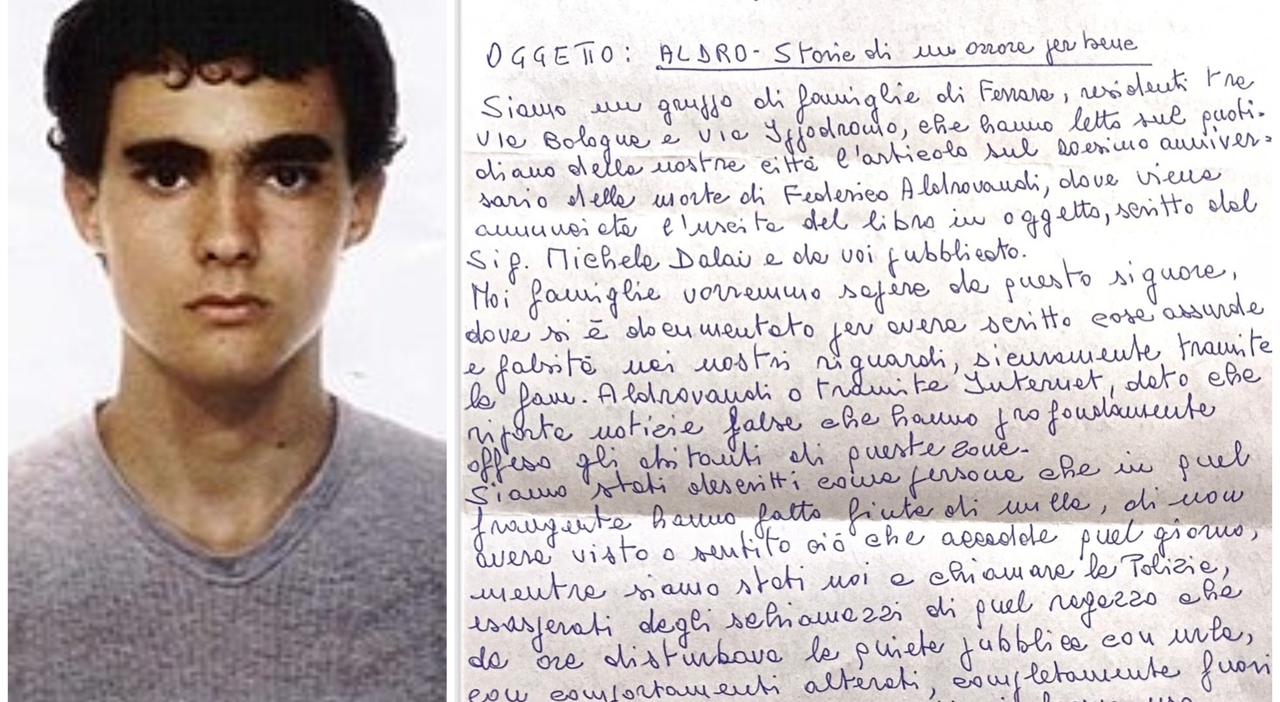 OGGETTO: ALDRO - Storie di un orrore per bene
Siamo un gruppo di famiglie di Ferrara, residenti tra
Via Bologna e Via Ippodromo, che hanno letto sul quoti-
diano della nostra città l'articolo sul 20esimo anniver-
sario della morte di Federico Aldrovandi, dove viene
annunciata l'uscita del libro in oggetto, scritto dal
Sig. Michele Dalai e da voi pubblicato.
Noi famiglie vorremmo sapere da questo signore,
dove si è documentato per avere scritto cose assurde
e falsità nei nostri riguardi, sicuramente tramite
la fam. Aldrovandi o tramite Internet, dato che
riporta notizie false che hanno profondamente
offeso gli abitanti di queste zone.
Siamo stati descritti come persone che in quel
frangente hanno fatto finta di nulla, di non
avere visto o sentito ciò che accadde quel giorno,
mentre siamo stati noi a chiamare la Polizia,
esasperati dagli schiamazzi di quel ragazzo che
da ore disturbava la quiete pubblica con urla,
con comportamenti alterati, completamente fuori